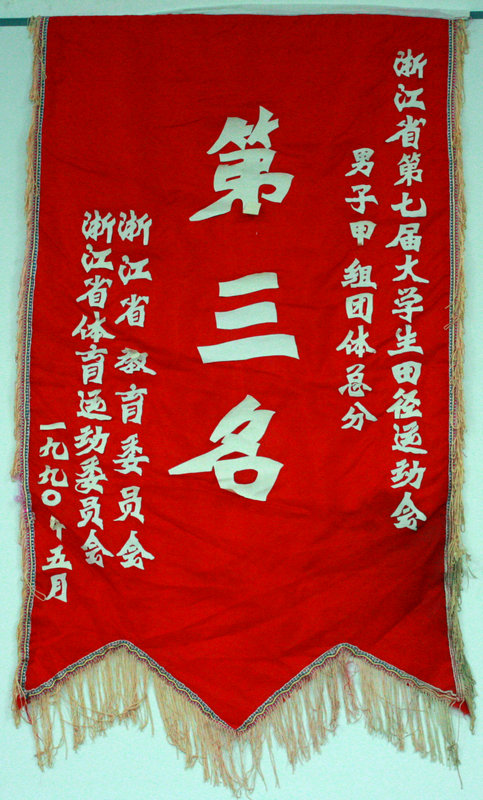 浙江省第七届大学生田径运动会
男子甲组团体总分
第三名
浙江省教育委员会
浙江省体育运动委员会
一九九〇年五月